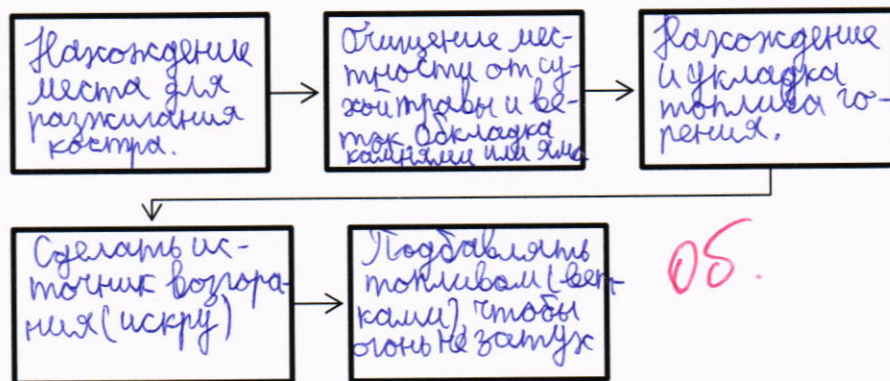 Нахождение
места для
разжигания
костра.
Очищение мес-
тности от су-
хой травы и ве-
ток. Обкладка
камнями или яма
Нахождение
и укладка
топлива го-
рения.
Сделать ис-
точник возгора-
ния (искру)
Подбавлять
топливом (вет-
ками), чтобы
огонь не затух
0б.